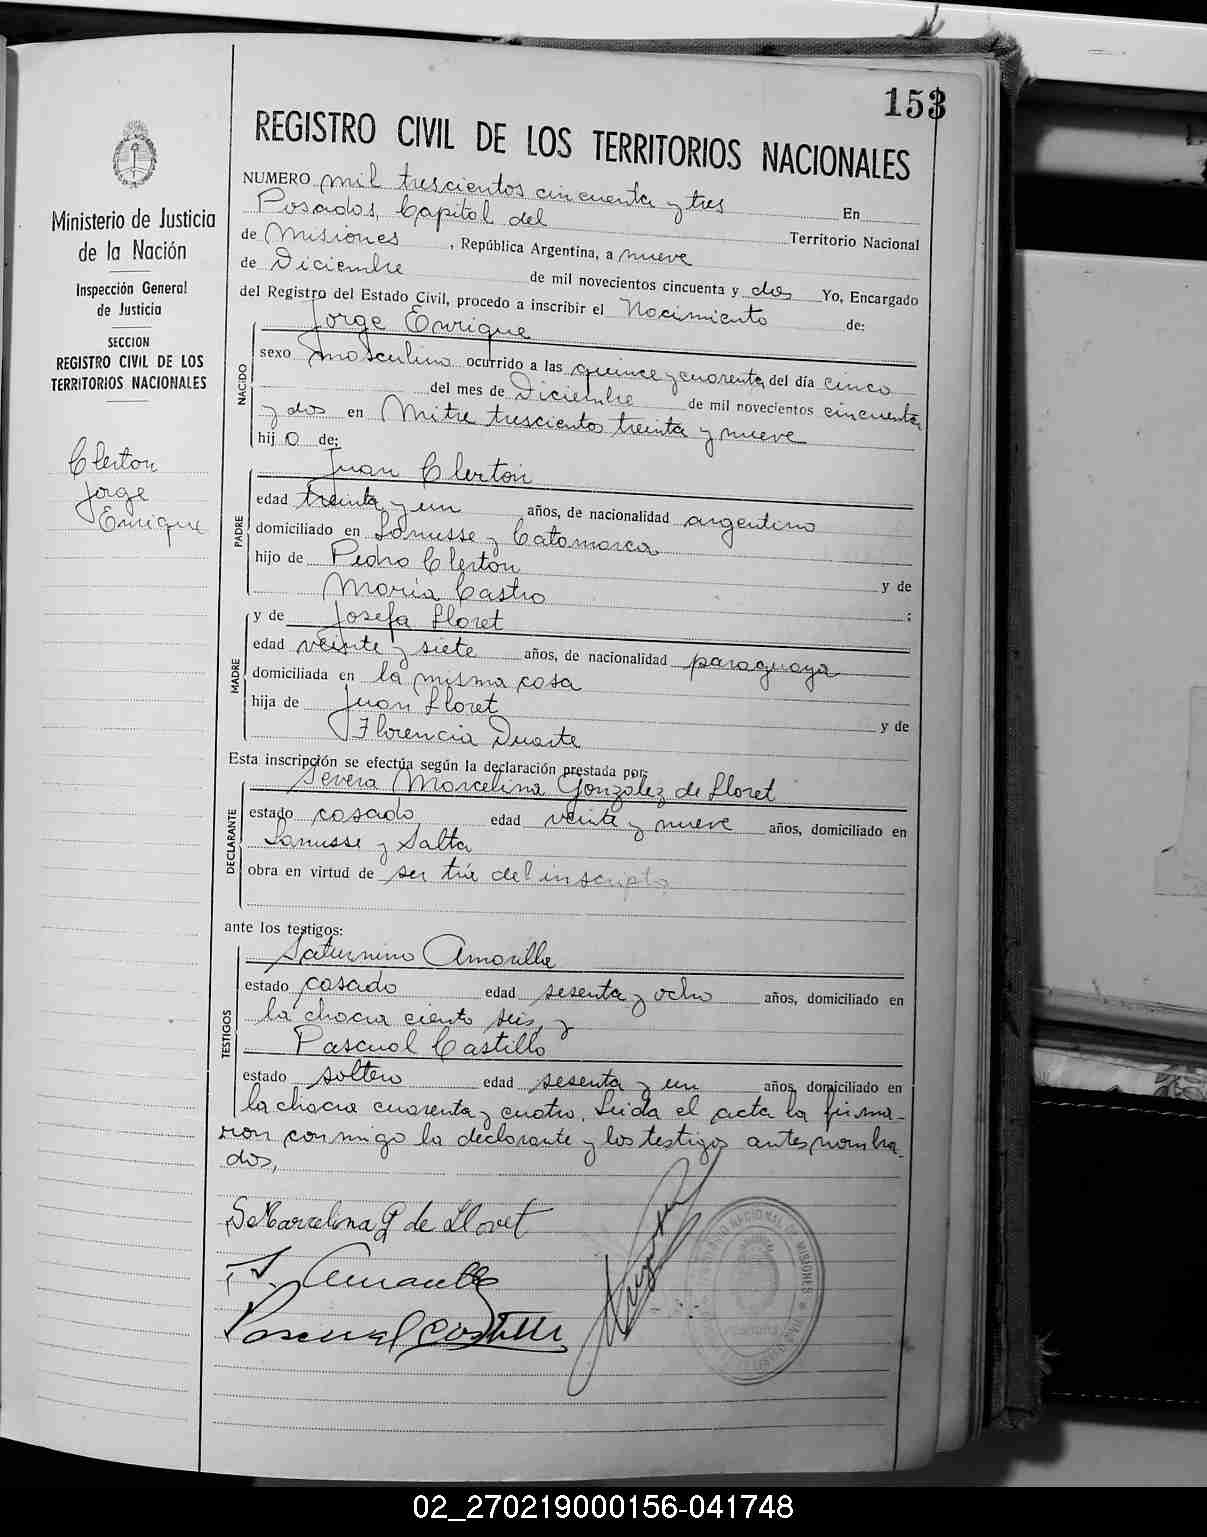 153
REGISTRO CIVIL DE LOS TERRITORIOS NACIONALES
Ministerio de Justicia
de la Nación
Inspección General
de Justicia
SECCION
REGISTRO CIVIL DE LOS
TERRITORIOS NACIONALES
Clerton
Jorge
Enrique
NUMERO mil trescientos cincuenta y tres En
Posadas, Capital del Territorio Nacional
de Misiones, República Argentina, a nueve
de Diciembre de mil novecientos cincuenta y dos Yo, Encargado
del Registro del Estado Civil, procedo a inscribir el Nacimiento de:
Jorge Enrique
NACIDO
sexo masculino ocurrido a las quince y cuarenta del día cinco
del mes de Diciembre de mil novecientos cincuenta
y dos en Mitre trescientos treinta y nueve
hij o de:
Juan Clerton
PADRE
edad treinta y un años, de nacionalidad argentino
domiciliado en Lanusse y Catamarca
hijo de Pedro Clerton y de
María Castro ;
y de Josefa Lloret
MADRE
edad veinte y siete años, de nacionalidad paraguaya
domiciliada en la misma casa
hija de Juan Lloret y de
Florencia Duarte
Esta inscripción se efectúa según la declaración prestada por:
Severa Marcelina Gonzalez de Lloret
DECLARANTE
estado casado edad veinte y nueve años, domiciliado en
Lanusse y Salta
obra en virtud de ser tía del inscripto
ante los testigos:
Saturnino Amarilla
TESTIGOS
estado casado edad sesenta y ocho años, domiciliado en
la chacra ciento seis, y
Pascual Castillo
estado soltero edad sesenta y un años, domiciliado en
la chacra cuarenta y cuatro. Leida el acta la firma-
ron conmigo la declarante y los testigos antes nombra-
dos,
S Marcelina G de Lloret
S. Amarilla
Pascual Castillo
02_270219000156-041748